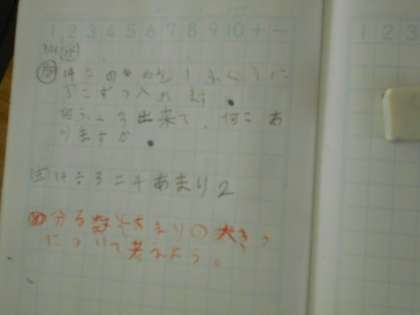 1 2 3 4 5 6 7 8 9 10 + -
14このあめを1ふくろに
3こずつ入れます。
何ふくろ出来て、何こあ
りますか。
14÷3=4あまり2
分る数とあまりの大きさ
について考えよう。
1 2 3